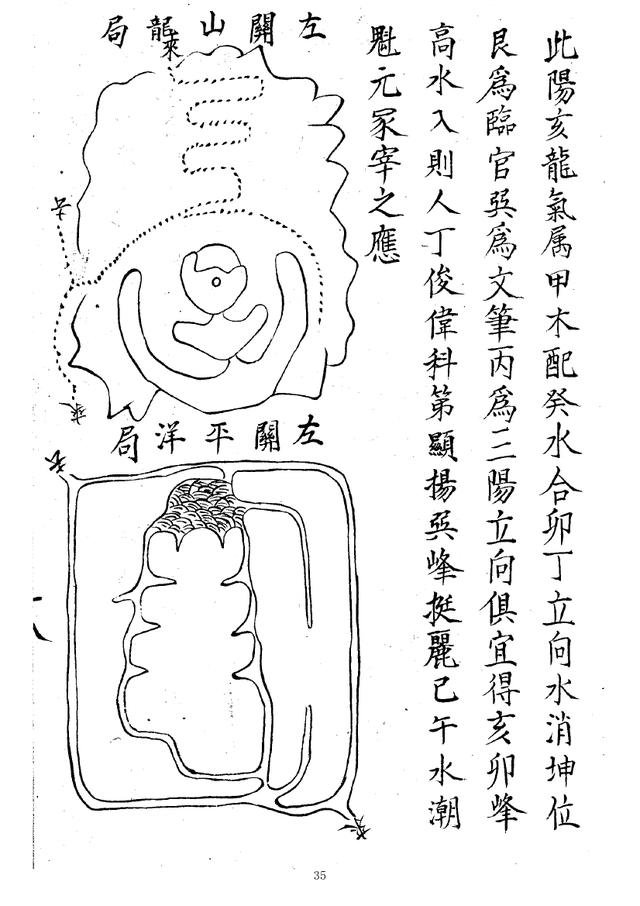 此陽亥龍氣属甲木配癸水合卯丁立向水消坤位
艮爲臨官巽爲文筆丙爲三陽立向俱宜得亥卯峰
高水入則人丁俊偉科第顯揚巽峰挺麗巳午水潮
魁元冢宰之應
左關山龍局
來
去
來
左關平洋局
去
來
35